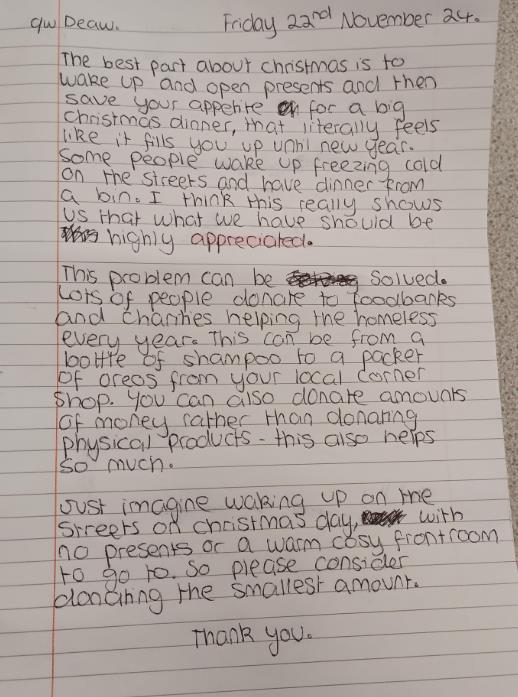 qw Deaw. Friday 22nd November 24.
The best part about christmas is to
wake up and open presents and then
save your appetite for a big
christmas dinner, that literally feels
like it fills you up until new year.
Some people wake up freezing cold
on the streets and have dinner from
a bin. I think this really shows
us that what we have should be
highly appreciated.
This problem can be solved.
Lots of people donate to foodbanks
and charities helping the homeless
every year. This can be from a
bottle of shampoo to a packet
of oreos from your local corner
shop. You can also donate amounts
of money rather than donating
physical products - this also helps
so much.
Just imagine waking up on the
streets on christmas day, with
no presents or a warm cosy frontroom
to go to. So please consider
donating the smallest amount.
Thank you.